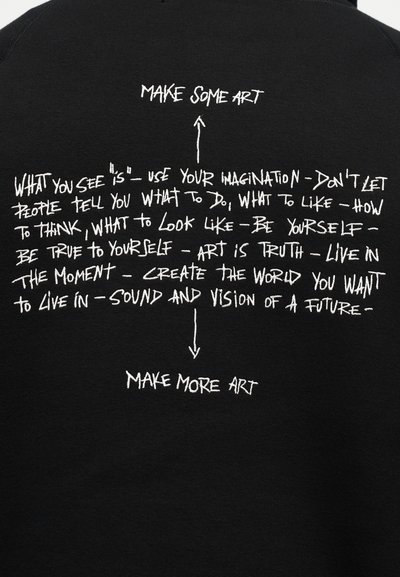 MAKE SOME ART
WHAT YOU SEE "IS" - USE YOUR IMAGINATION - DON'T LET
PEOPLE TELL YOU WHAT TO DO, WHAT TO LIKE - HOW
TO THINK, WHAT TO LOOK LIKE - BE YOURSELF -
BE TRUE TO YOURSELF - ART IS TRUTH - LIVE IN
THE MOMENT - CREATE THE WORLD YOU WANT
TO LIVE IN - SOUND AND VISION OF A FUTURE -
MAKE MORE ART